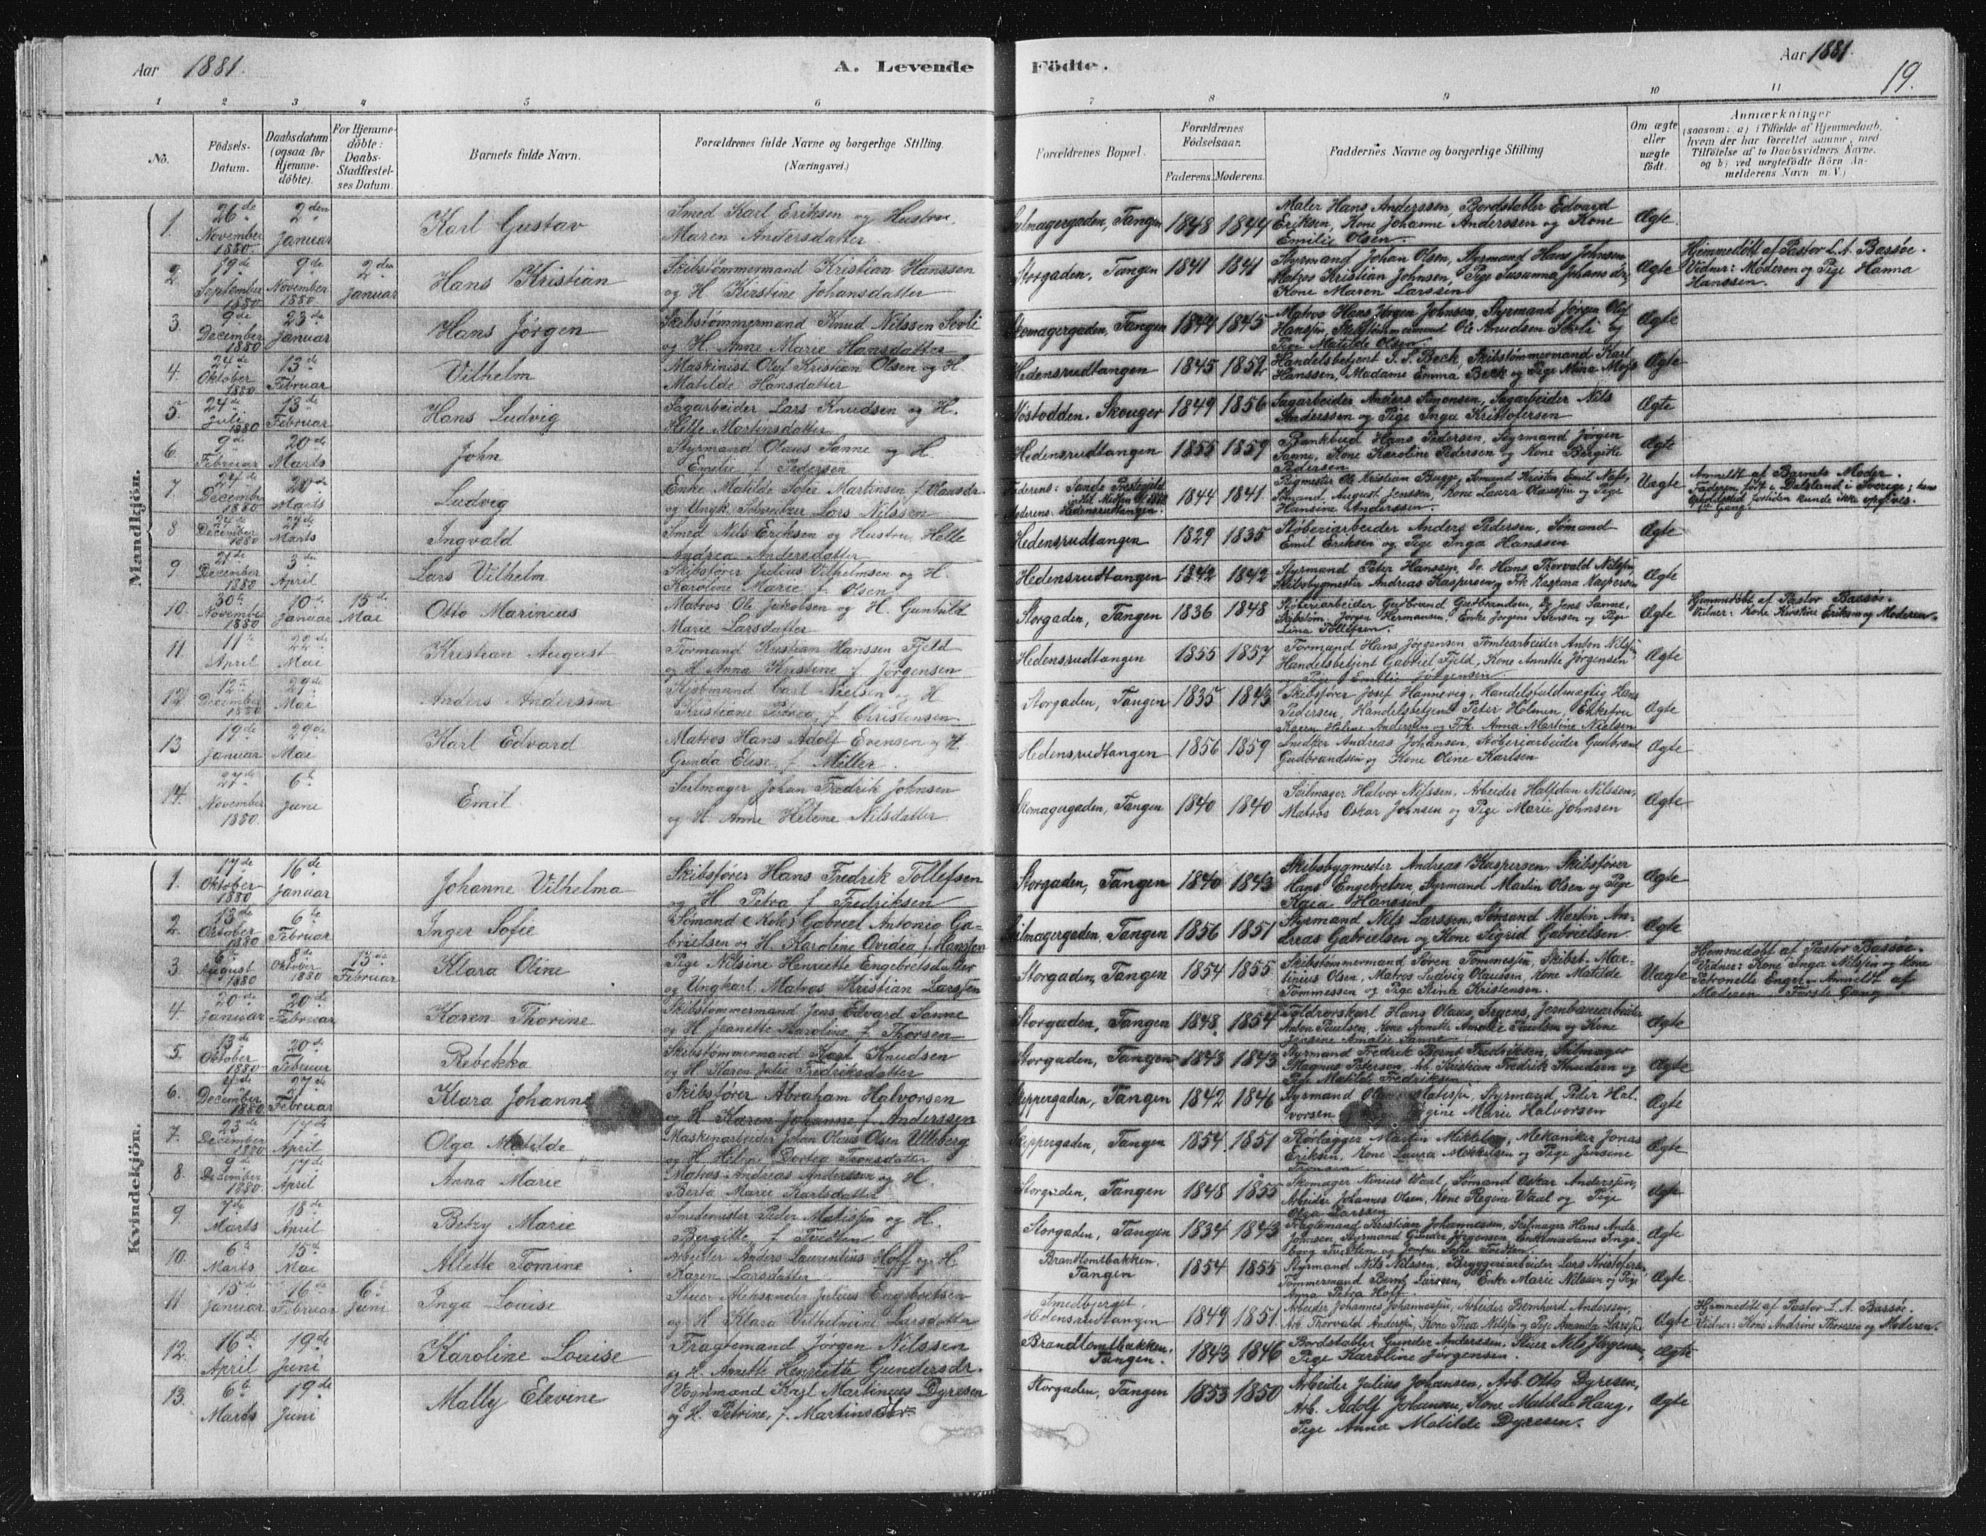 Aar 1881.
A. Levende Födte.
Aar 1881.
19.
1 2 3 4 5 6 7 8 9 10 11
No.
Födsels-Datum.
Daabsdatum (ogsaa for Hjemmedöbte).
For Hjemmedöbte: Daabs-Stadfæstelses Datum.
Barnets fulde Navn.
Forældrenes fulde Navne og borgerlige Stilling.
(Næringsvei.)
Forældrenes Bopæl.
Forældrenes Födselsaar.
Faderens. Moderens.
Faddernes Navne og borgerlige Stilling
Om ægte eller uægte födt.
Anmærkninger
(saasom: a) i Tilfælde af Hjemmedaab, hvem der har forrettet samme, med Tilföielse af to Daabsvidners Navne, og b) ved uægtefödte Börn Anmelderens Navn m. V.)
Mandkjön.
1. 26de November 1880 2den Januar Karl Gustav Smed Karl Eriksen og Hustru Maren Andersdatter Seilmagergaden, Tangen 1848 1844 Maler Hans Anderssen, Bordstabler Edvard Eriksen, Kone Johanne Anderssen og Kone Emilie Olsen. Ægte
2. 19de September 1880 9de November 1880 2den Januar Hans Kristian Skibstømmermand Kristian Hanssen og H. Kirstine Johansdatter Storgaden, Tangen 1841 1841 Styrmand Johan Olsen, Styrmand Hans Johnsen, Matros Kristian Johnsen, Pige Susanna Kone Maren Larssen Ægte Hjemmedöbt af Pastor L. A. Bassøe. Vidner: Moderen og Pige Hanna Hanssen.
3. 9de December 1880 23de Januar Hans Jørgen Skibstømmermand Knud Nilssen og H. Anne Marie Hansdatter Skomagergaden, Tangen 1844 1845 Matros Hans Jørgen Johnsen, Styrmand Jørgen Olaf Ole Knudsen og Pige Matilde Olsen. Ægte
4. 24de Oktober 1880 13de Februar Vilhelm Maskinist Oluf Kristian Olsen og H. Matilde Hansdatter Hedensrudtangen 1845 1852 Handelsbetjent Beck, Skibstømmermand Karl Hanssen, Madame Emma Beck og Pige Mina Ægte
5. 24de Juli 1880 13de Februar Hans Ludvig Sagarbeider Lars Knudsen og H. Helle Martinsdatter Skouger 1849 1856 Sagarbeider Anders Simonsen, Sagarbeider Nils Anderssen og Pige Inga Kristofersen Ægte
6. 9de Februar 20de Marts John Styrmand Olaus Sanne og H. Emilie f. Pedersen Hedensrudtangen 1855 1859 Bankbud Hans Pedersen, Styrmand Jørgen Sanne, Kone Karoline Pedersen og Kone Bergitte Pedersen Ægte
7. 24de December 1880 20de Marts Ludvig Enke Matilde Sofie Martinsen f. Olausdr. og Ungk. Lars Nilssen Moderens: Hedensrudtangen. 1844 1841 Ole Kristian Bugge, Sømand Kristen Emil Sømand August Jenssen, Kone Laura og Pige Hansine Anderssen. Uægte Anmeldt af Barnets Moder. Faderen född i Dalsland i Sverige;
8 24de December 1880 27de Marts Ingvald Smed Nils Eriksen og Hustru Helle Andrea Andersdatter Hedensrudtangen 1829 1835 Støberiarbeider Anders Pedersen, Sømand Emil Eriksen og Pige Inga Hanssen Ægte
9 21de December 1880 3die April Lars Vilhelm Skibsfører Julius Vilhelmsen og H. Karoline Marie f. Olsen Hedensrudtangen 1842 1842 Styrmand Peter Hanssen, Hans Thorvald Skibsbygmester Andreas Kaspersen og Frk Kaspersen Ægte
10. 30te November 1880 10de Januar 15de Mai Otto Marinius Matros Ole Jakobsen og H. Gunhild Marie Larsdatter Storgaden, Tangen 1836 1848 Støberiarbeider Gudbrand Gudbrandsen, Jens Sanne, Jørgen Hermansen, Enke Petersen og Pige Lina Tollefsen Ægte Hjemmedöbt af Pastor Bassøe. Vidner: Kone Kirstine Eriksen og Moderen.
11. 11te April 22de Mai Kristian August Formand Kristian Hanssen Fjeld og H. Anna Kirstine f. Jørgensen Hedensrudtangen 1855 1857 Formand Hans Jørgensen, Tomtearbeider Anton Handelsbetjent Gabriel Fjeld, Kone Annette Jørgensen Pige Emilie Jørgensen Ægte
12. 12te December 1880 29de Mai Anders Anderssen Kjøbmand Carl Nielsen og H. Kristiane Petrea f. Christensen Storgaden, Tangen 1835 1843 Skibsfører Josef Hannevig, Handelsfuldmægtig Hans Pedersen, Handelsbetjent Peter Holmen, Enkefru Karen Helene og Frk. Anna Martine Nielsen Ægte
13 19de Januar 29de Mai Karl Edvard Matros Hans Adolf Evensen og H. Gunda Elise f. Møller. Hedensrudtangen 1856 1859 Snedker Andreas Johansen, Støberiarbeider Gudbrand Gudbrandsen og Kone Olene Karlsen Ægte
14. 27de November 1880. 6te Juni Emil Seilmager Johan Fredrik Johnsen og H. Anne Helene Nilsdatter Skomagergaden, Tangen 1840 1840 Seilmager Halvor Nilssen, Arbeider Halfdan Nilssen, Matros Oskar Johnsen og Pige Marie Johnsen Ægte
Kvindekjön.
1. 17de Oktober 1880 16de Januar Johanne Vilhelma Skibsfører Hans Fredrik Tollefsen og H. Petra f. Fredriksen Storgaden, Tangen 1840 1843 Skibsbygmester Andreas Kaspersen, Skibsfører Hans Engebretsen, Styrmand Martin Olsen og Pige Kaia Hanssen Ægte
2. 13de Oktober 1880 6te Februar Inger Sofie Sømand (Kok) Gabriel Antonio Gabrielsen og H. Karoline Ovidea f. Hanssen Seilmagergaden, Tangen 1856 1851 Styrmand Nils Larssen, Sømand Martin Andreas Gabrielsen og Kone Sigrid Gabrielsen Ægte
3. 6te August 1880 8de Oktober 1880 13de Februar Klara Oline Pige Nilsine Henriette Engebretsdatter og Ungkarl, Matros Kristian Larssen Storgaden, Tangen 1854 1855 Skibstømmermand Søren Tommessen, Skibst. Martinius Olsen, Matros Ludvig Olaussen Kone Matilde Tommessen og Pige Stina Kristensen. Uægte Hjemmedöbt af Pastor Bassøe. Vidner: Kone Inga Nilssen og Kone Petronelle Engr. Anmeldt af Moderen. Første Gang
4. 20de Januar 20de Februar Karen Thorine Skibstømmermand Jens Edvard Sanne og H. Jeanette Karoline f. Thorsen Storgaden, Tangen 1848. 1854 Toldrorskarl Hans Olaus Jernbanearbeider Anton Paulsen, Kone Annette Amalie Paulsen og Kone Amalie Sanne Ægte
5. 13de Oktober 1880 20de Februar Rebekka Skibstømmermand Karl Knudsen og H. Karen Julie Fredriksdatter Storgaden, Tangen 1843 1843 Styrmand Fredrik Bernt Fredriksen, Seilmager Magnus Peterson, Arb. Kristian Fredrik Knudsen og Pige Matilde Fredriksen Ægte
6. December 1880 27de Februar Klara Johanne Skibsfører Abraham Halvorsen og H. Karen Johanne f. Anderssen Skippergaden, Tangen 1842 1846 Styrmand Styrmand Peder Halvorsen Marie Halvorsen Ægte
7. 23de December 1880 17de April Olga Matilde Maskinarbeider Johan Olaus Olsen Ulleberg og H. Helene Dortea Skippergaden, Tangen 1854. 1851 Rørlægger Martin Mikkelsen, Mekaniker Jonas Eriksen, Kone Laura Mekkelsen og Pige Jensine Ægte
8. 9de December 1880. 17de April Anna Marie Matros Andreas Anderssen og H. Berta Marie Karlsdatter Storgaden, Tangen 1848 1855 Skomager Ninius Waal, Sømand Oskar Anderssen, Arbeider Johannes Olsen, Kone Regine Waal og Pige Olga Larssen Ægte
9. 7de Marts 18de April Betzy Marie Smedemester Peter Matissen og H. Bergitte f. Tvedten Storgaden, Tangen 1834 1843 Fragtemand Kristian Johannesen, Seilmager Hans Johnsen, Styrmand Gunder Jørgensen, Enkemadame Ingeborg Tvedten og Sofie Tvedten Ægte
10. 6te Marts 15de Mai Allette Tomine Arbeider Anders Laurentius Hoff og H. Karen Larsdatter Brandtomtbakken, Tangen 1854 1855 Styrmand Nils Nilssen, Bryggeriarbeider Lars Kristofersen Tømmermand Bernt Larssen, Enke Marie Nilssen og Pige Anna Petra Hoff Ægte
11. 15de Januar 16de Februar 6te Juni Inga Louise Aleksander Julius Engebretsen og H. Klara Vilhelmine Larsdatter Smedbjerget, Hedensrudtangen 1849 1851 Arbeider Johannes Johannessen, Arbeider Bernhard Anderssen, Arb. Thorvald Anderssen, Kone Thea Nilssen og Pige Amanda Larssen Ægte Hjemmedöbt af Pastor L. A. Bassøe. Vidner: Kone Andrine Thoresen og Moderen.
12. 16de April 19de Juni Karoline Louise Fragtemand Jørgen Nilssen og H. Anette Henriette Gundersdr. Brandtomtbakken, Tangen. 1843 1846 Bordstabler Gunder Anderssen, Stuer Nils Jørgensen, Pige Karoline Jørgensen. Ægte
13. 6te Marts 19de Juni Mally Elevine Karl Martinius Dyresen og H. Petrine, f. Martinsdr. Storgaden, Tangen 1853 1850 Arbeider Julius Johansen, Arb. Otto Dyresen, Arb. Adolf Johansen, Kone Matilde Haug, Pige Anna Matilde Dyresen. Ægte